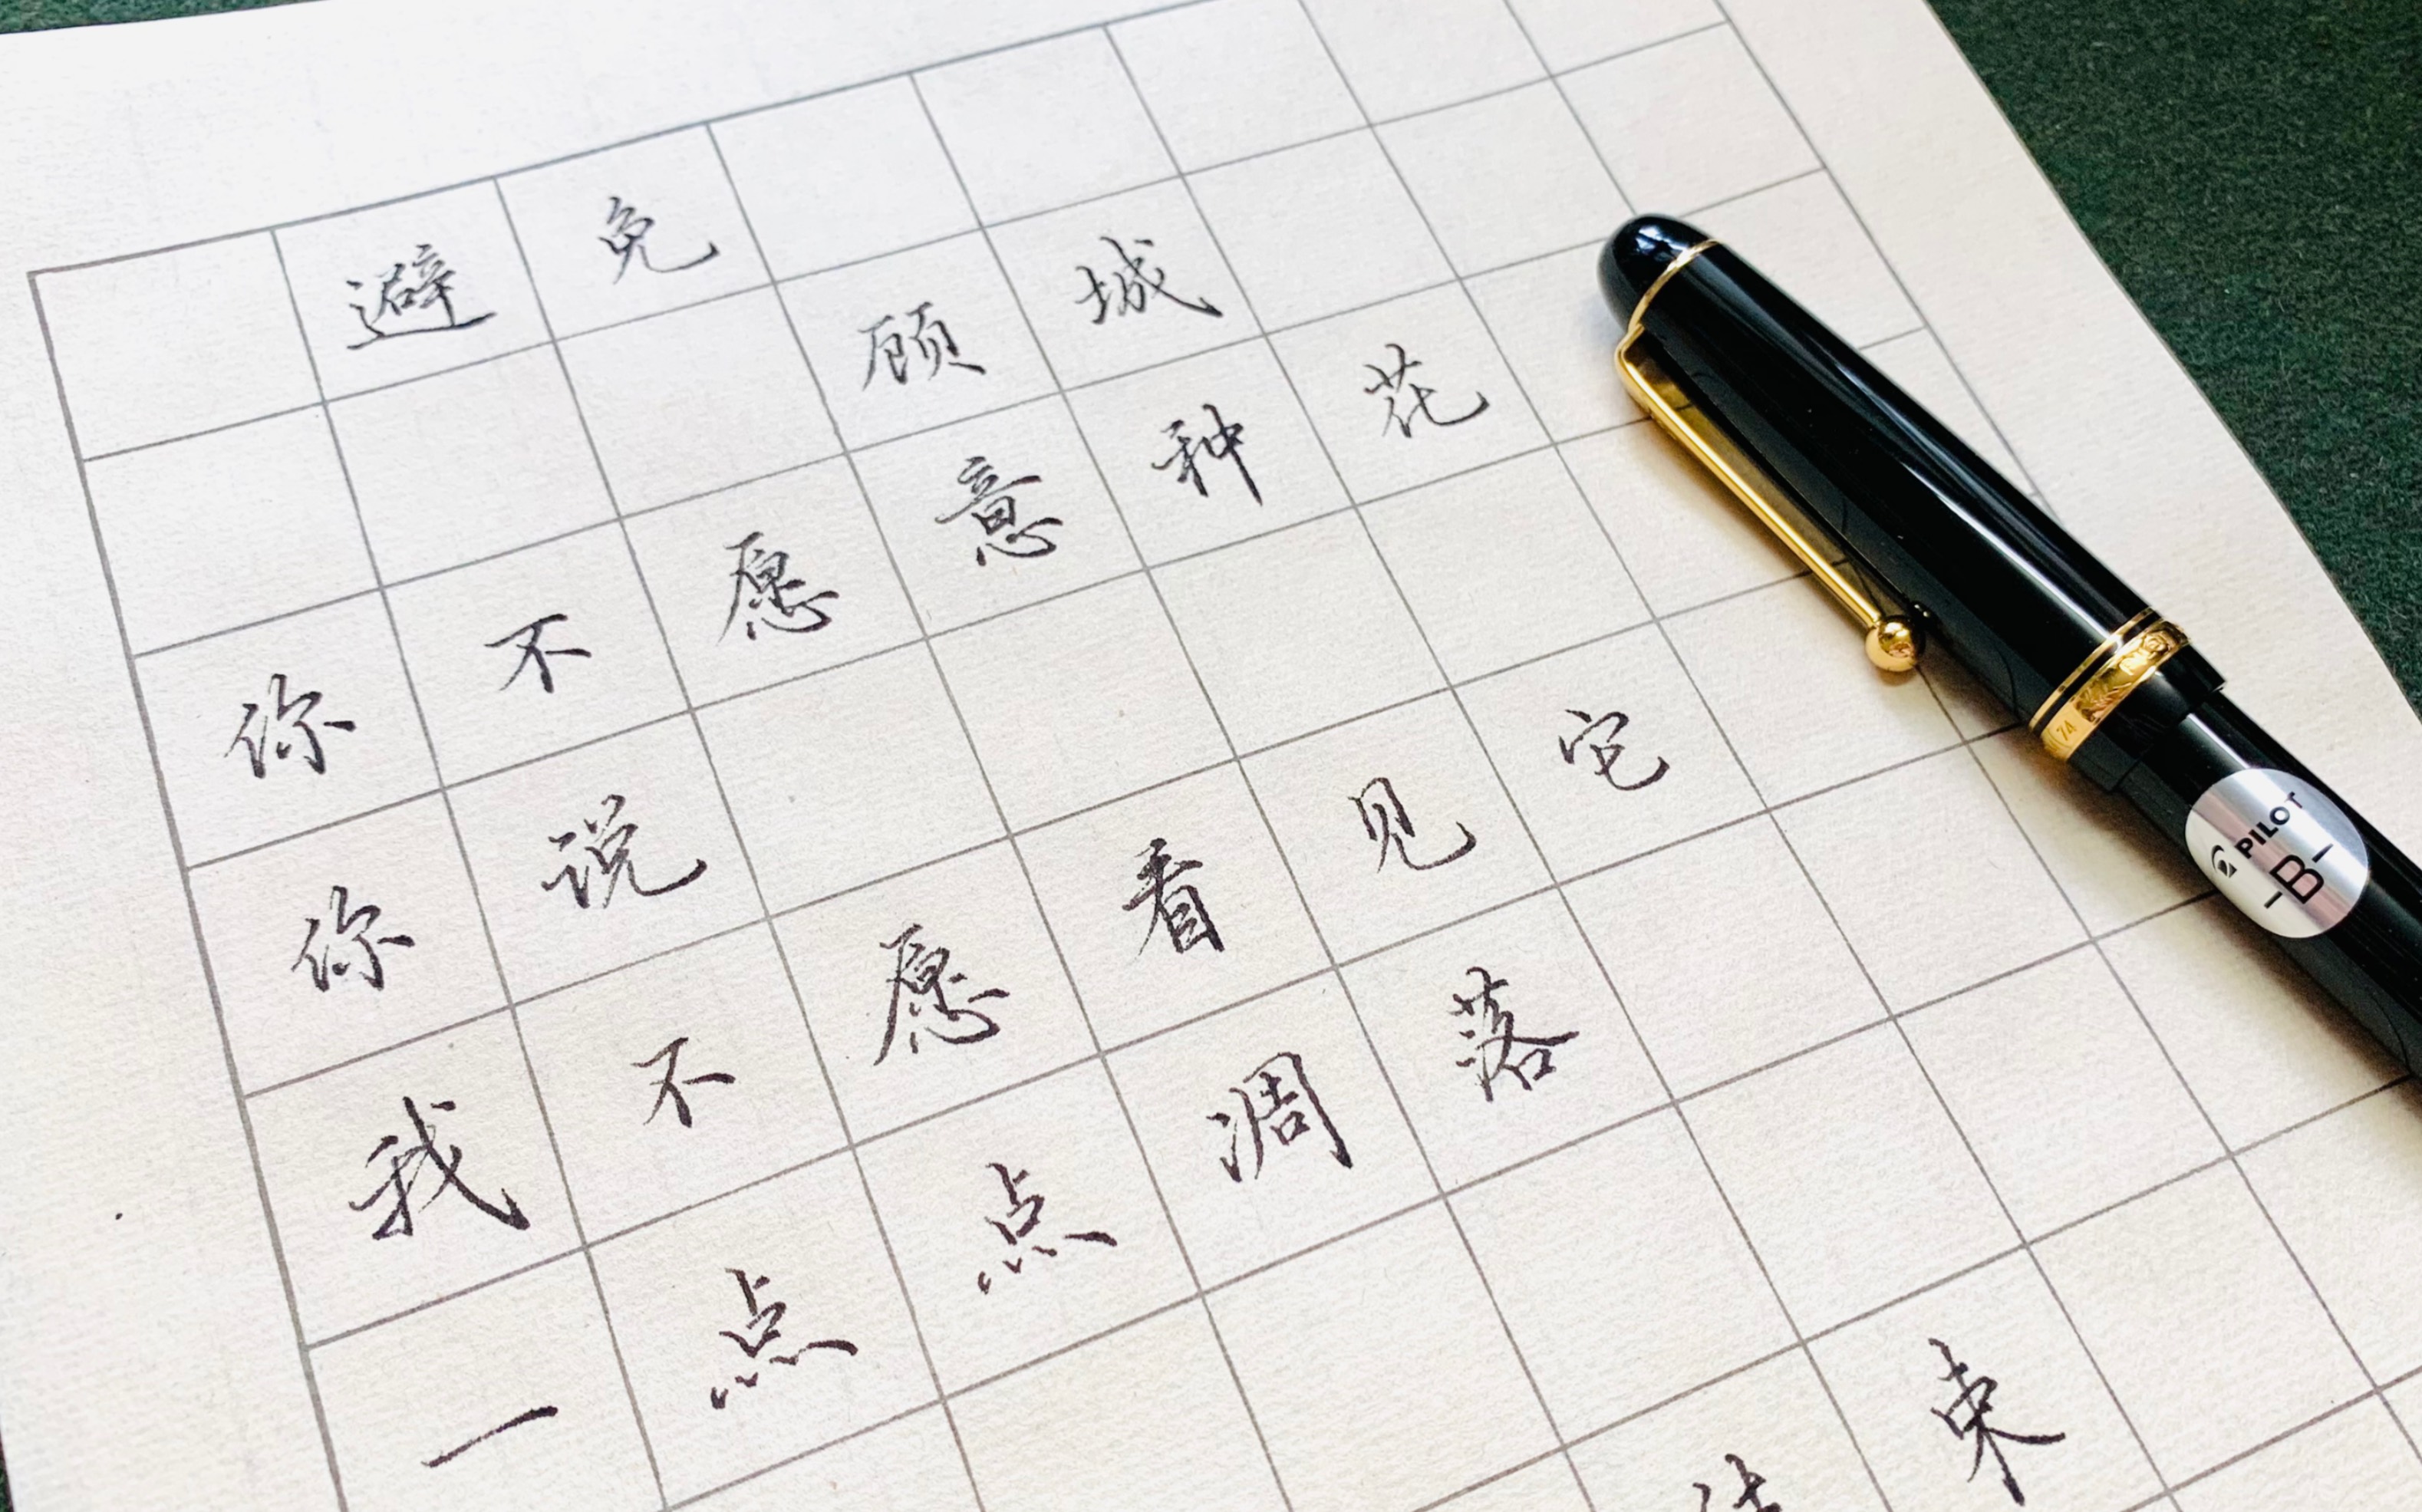 避免
顾城
你不愿意种花
你说
我不愿看见它
一点点凋落
束
PILOT
-B-